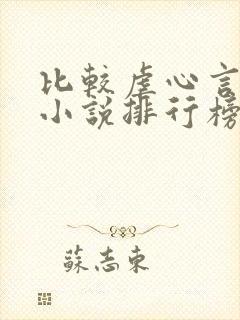 比較虐心言
小說排行榜
蘇志東